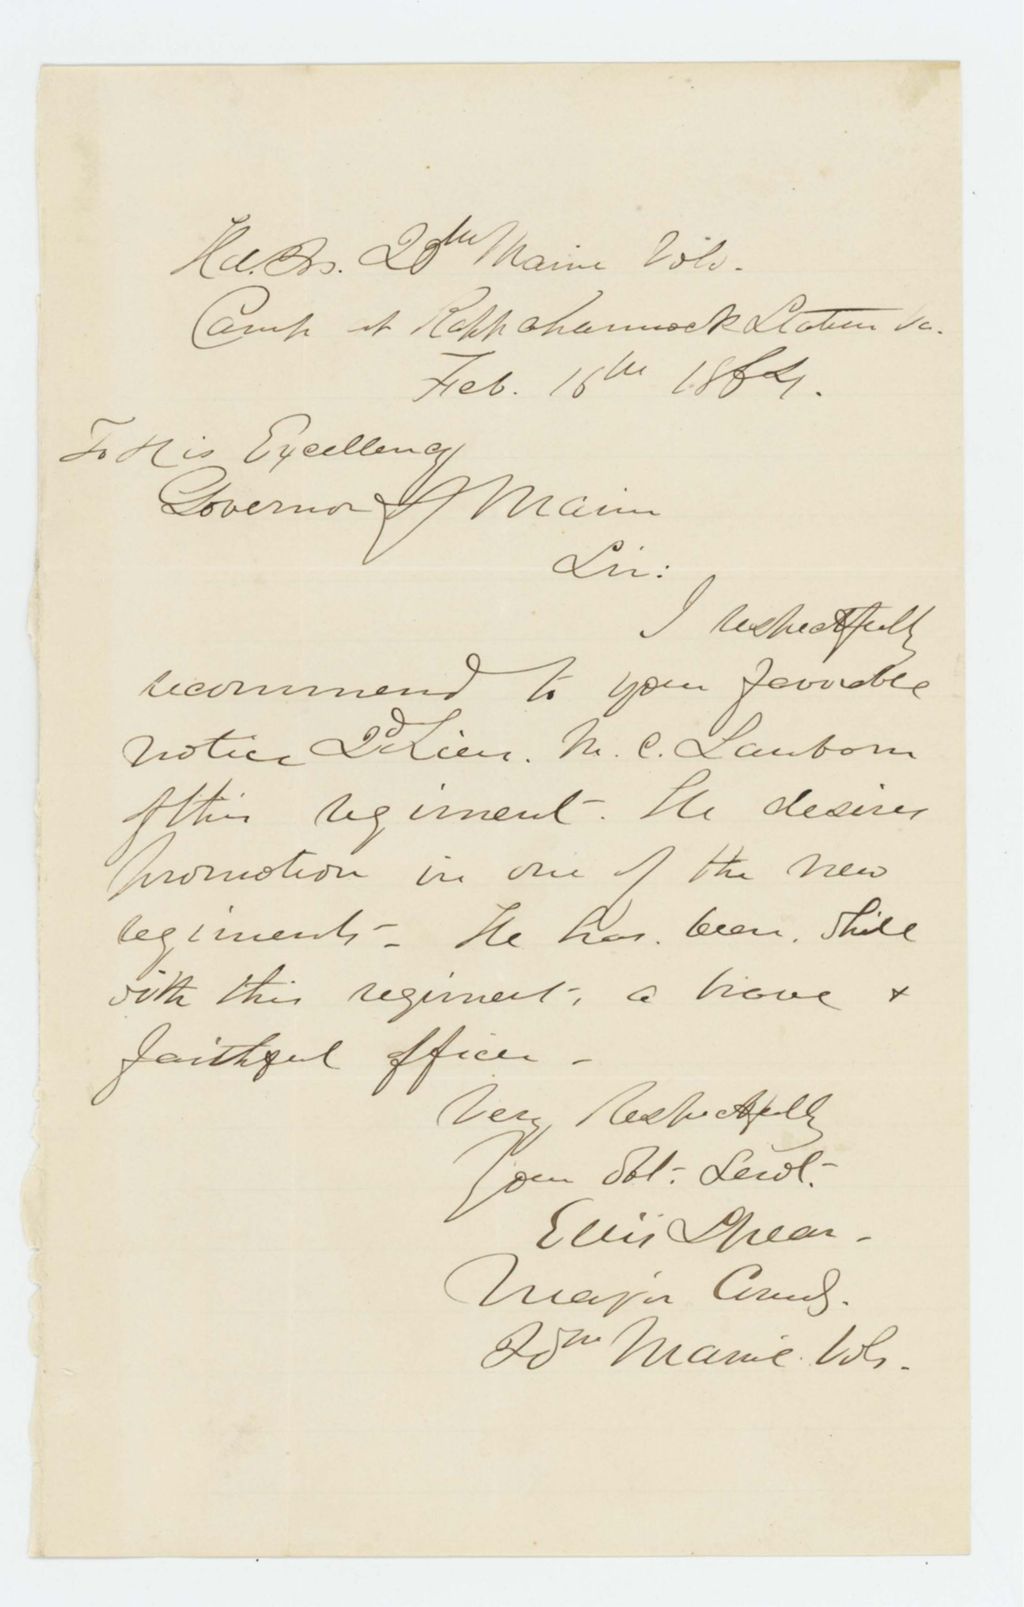 Hd. Qrs. 20th Maine Vols.
Camp at Rappahannock Station Va.
Feb. 16th 1864.
To His Excellency
Governor of Maine
Sir:
I respectfully
recommend to your favorable
notice 2d Lieu. M. C. Sanborn
of this regiment. He desires
promotion in one of the new
regiments - He has been, while
with this regiment, a brave &
faithful officer -
Very Respectfully
Your Obt. Servt.
Ellis Spear -
Major Comd.
20th Maine Vols.